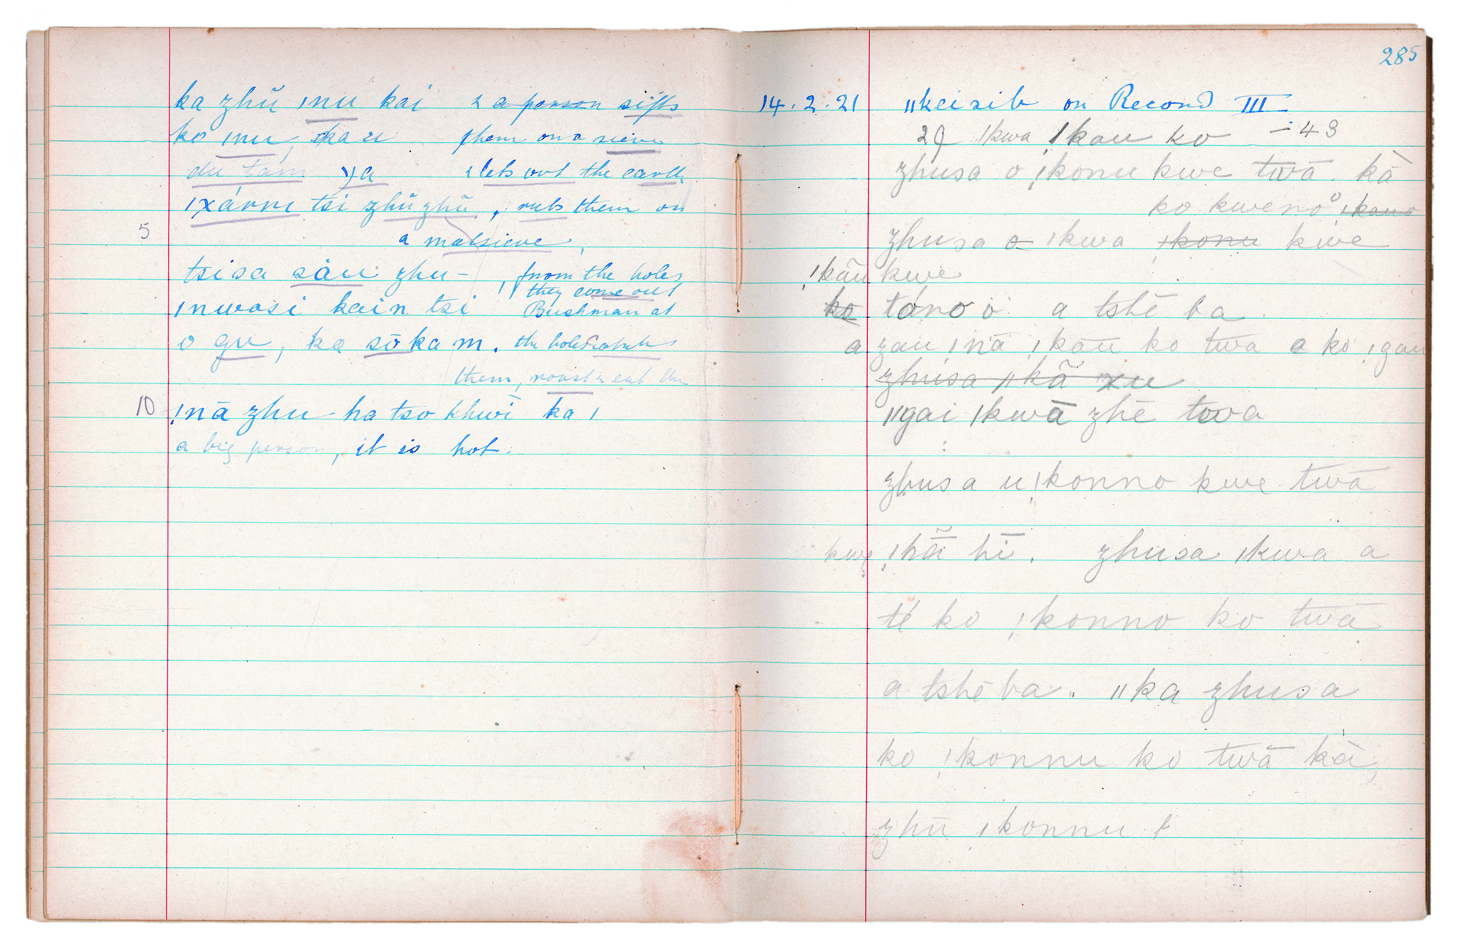 ka zhŭ ınu kai & a person sifts
ko ınu, okau them on a sieve
du tam ya & lets out the earth
ıxárru tsi zhŭzhŭ, rubs them on
5
a matsieve,
tsisa sàu zhu- from the holes
they come out
ınwasi kain tsi Bushman at
o gu, ka sōkam. the holes
them, roast & eat them
10 ǃnā zhu ha tso khwī ka ı
a big person, it is hot.
285
14.2.21 ıı on Record III
29 ǃkwa ǃkau ko - 43
zhusa o ǃkonu kwe twā. kā
ko kweno ǃkono
zhusa o ıkwa ǃkonu kwe
ǃkāu kwe
ko tono o a tshē ba
a zau ınā ǃkau ko twa e ko ǃgau
zhusa ııkã xu
ııgai ıkwā zhē towa
zhusa u ǃkonno kwe twā
kwe ǃhã hī. zhusa ıkwa a
té ko ǃkonno ko twā
a tshē ba. ııka zhusa
ko ǃkonnu ko twā kā,
zhū ǃkonnu t